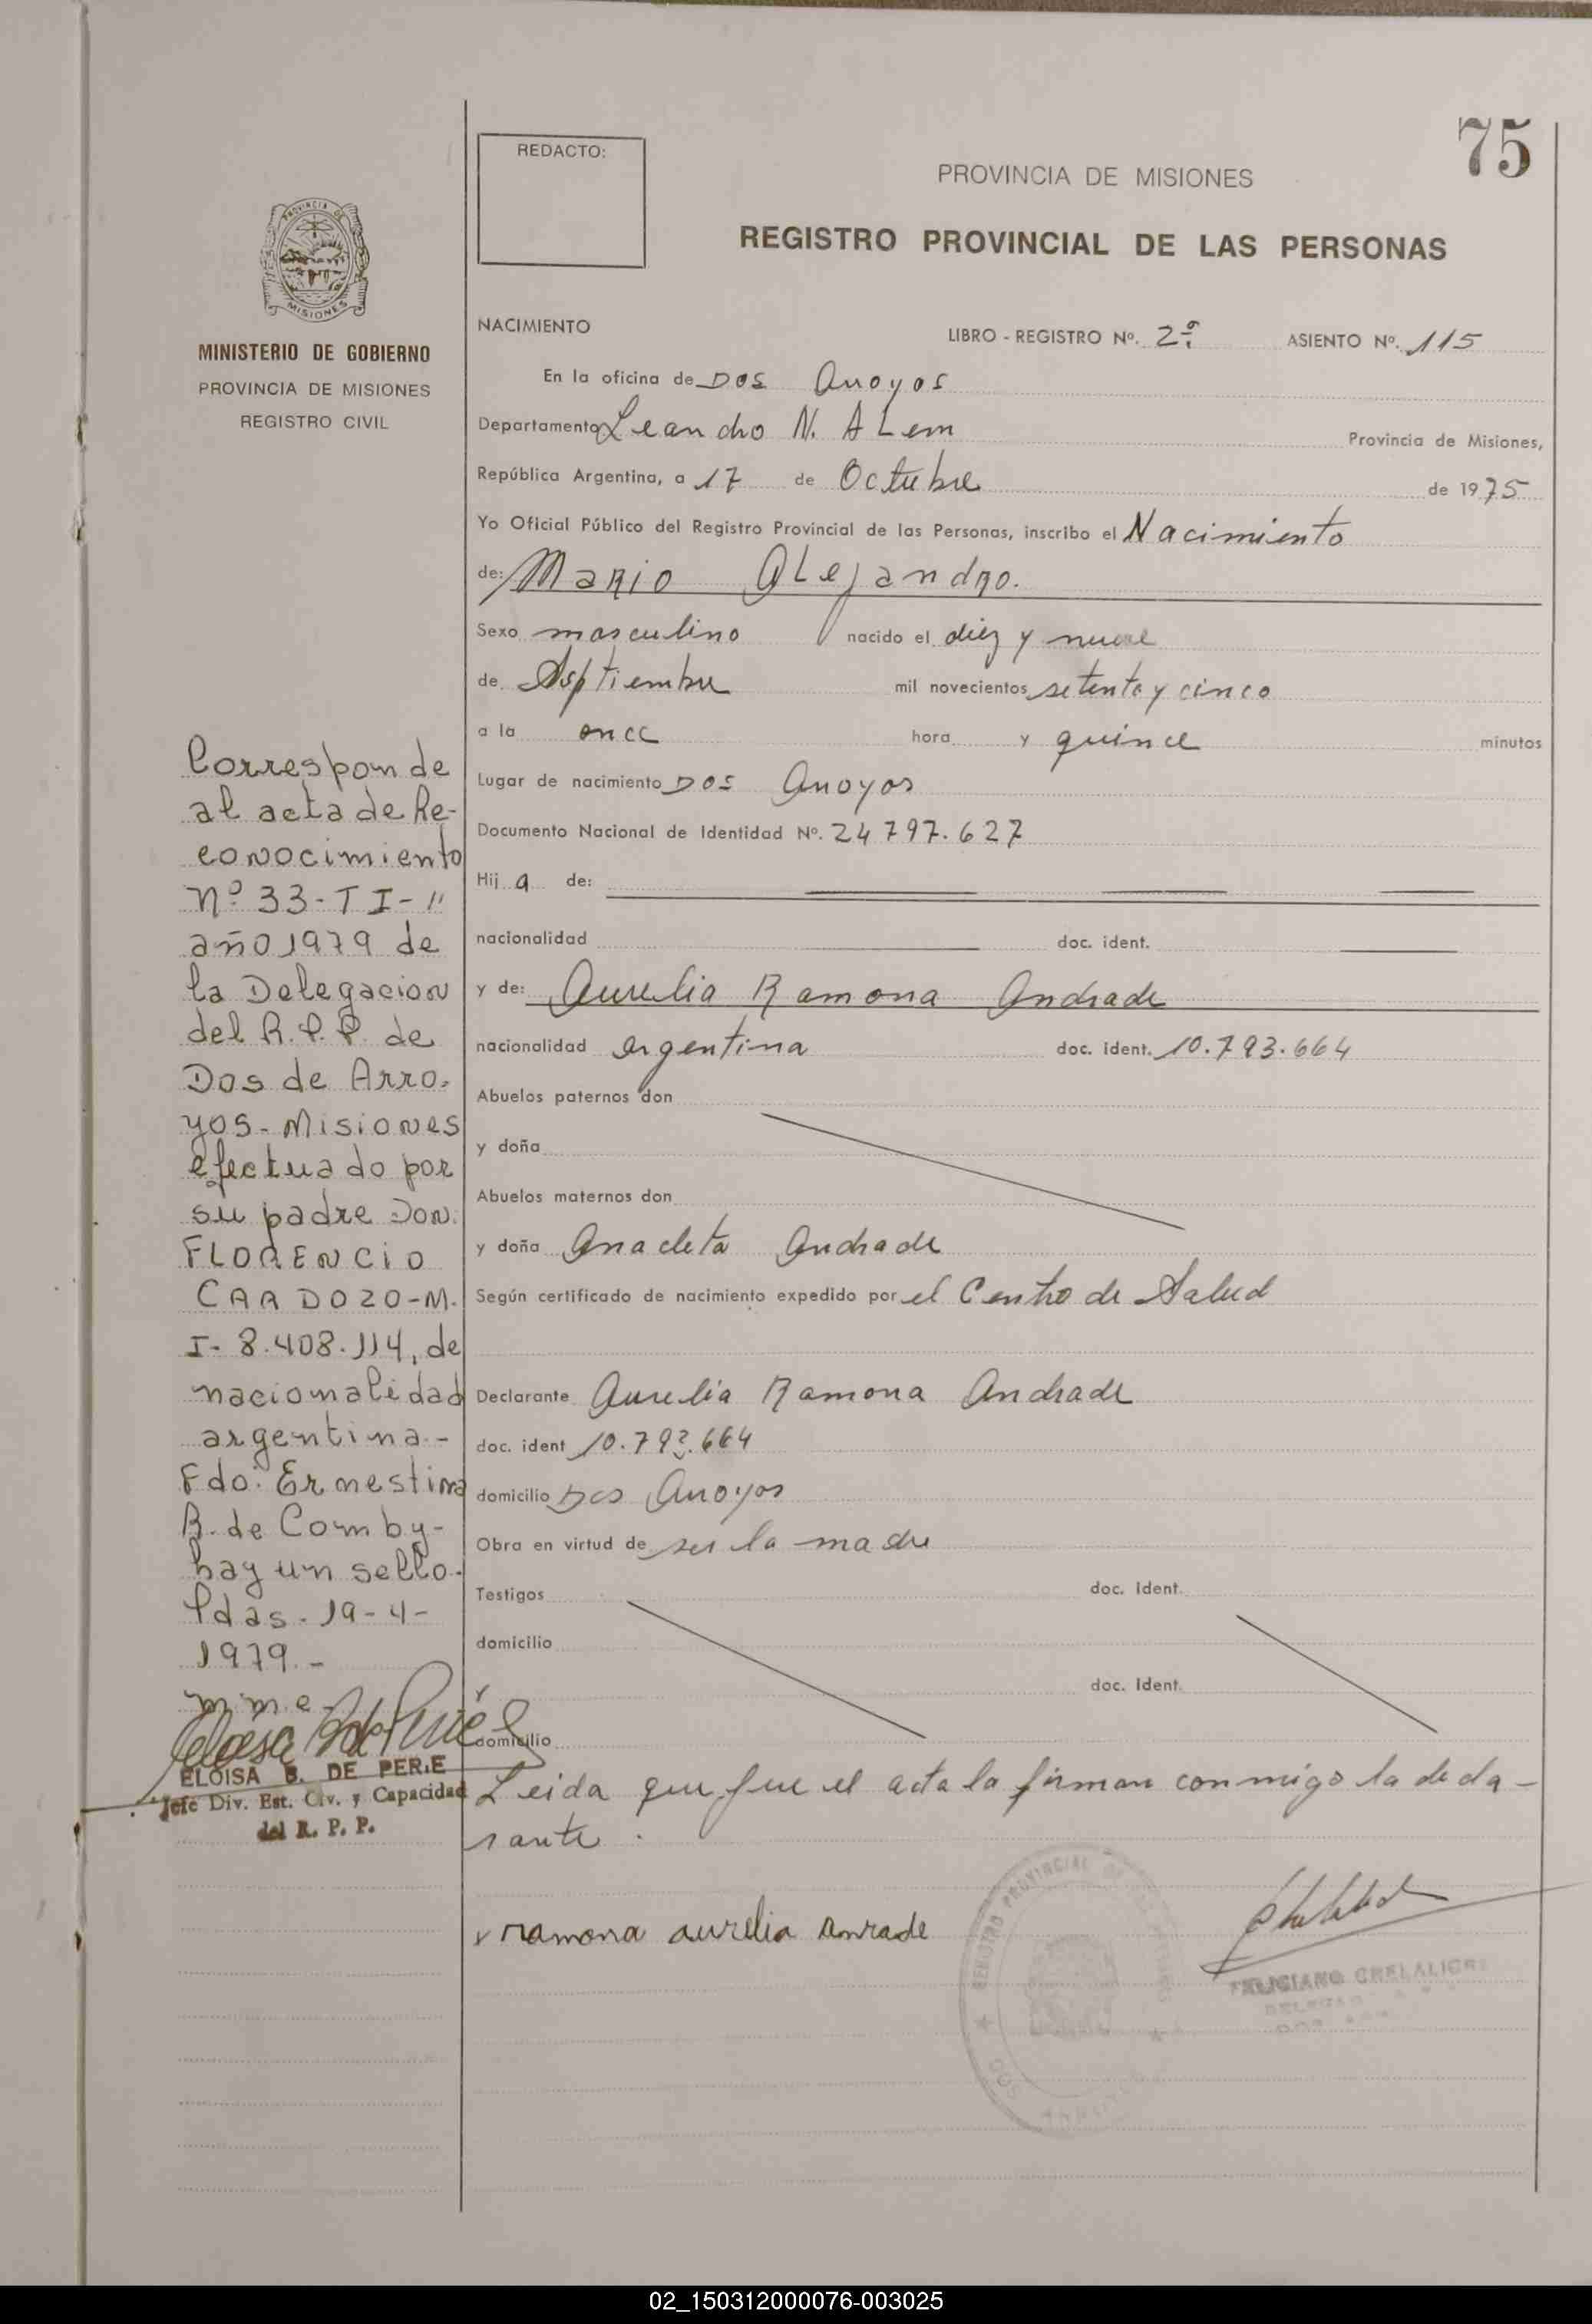 75
REDACTO:
PROVINCIA DE MISIONES
REGISTRO PROVINCIAL DE LAS PERSONAS
PROVINCIA DE
MISIONES
MINISTERIO DE GOBIERNO
PROVINCIA DE MISIONES
REGISTRO CIVIL
NACIMIENTO LIBRO - REGISTRO Nº. 2º ASIENTO Nº. 115
En la oficina de DOS Arroyos
Departamento Leandro N. ALem Provincia de Misiones,
República Argentina, a 17 de Octubre de 1975
Yo Oficial Público del Registro Provincial de las Personas, inscribo el Nacimiento
de: MARIO ALejandRO.
Sexo masculino nacido el diez y nueve
de Septiembre mil novecientos setenta y cinco
a la once hora y quince minutos
Lugar de nacimiento DOS Arroyos
Documento Nacional de Identidad Nº. 24797.627
Hij a de:
nacionalidad doc. ident.
y de: Aurelia Ramona Andrade
nacionalidad argentina doc. ident. 10.793.664
Abuelos paternos don
y doña
Abuelos maternos don
y doña Anacleta Andrade
Según certificado de nacimiento expedido por el Centro de Salud
Declarante Aurelia Ramona Andrade
doc. ident 10.793.664
domicilio Dos Arroyos
Obra en virtud de ser la madre
Testigos doc. Ident.
domicilio
y doc. Ident.
domicilio
Leida que fue el acta la firman conmigo la decla-
rante.
Ramona aurelia Anrade
FELICIANO
REGISTRO PROVINCIAL DE
DOS
Corresponde
al acta de Re-
conocimiento
nº 33-TI-"
año 1979 de
la Delegacion
del R.P.P. de
Dos de Arro-
yos-Misiones
efectuado por
su padre Don.
FLORENCIO
CARDOZO-M.
I- 8.408.114, de
nacionalidad
argentina.-
Fdo: Ernestina
B. de Comby-
hay un sello.
Pdas. 19-4-
1979.-
m.m.e.
ELOISA B. DE PERIE
Jefe Div. Est. Civ. y Capacidad
del R. P. P.
02_150312000076-003025